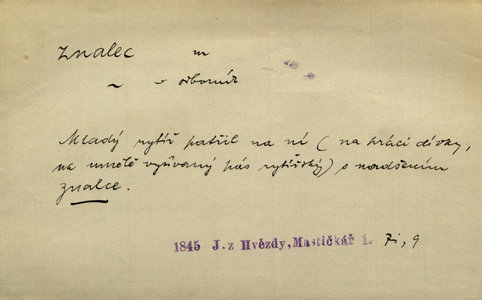 Znalec m
~ = odborník
Mladý rytíř patřil na ni (na práci dívky,
na uměle vyšívaný pás rytířský) s nadšením
znalce.
1845 J. z Hvězdy, Mastičkář 1. 71, 9